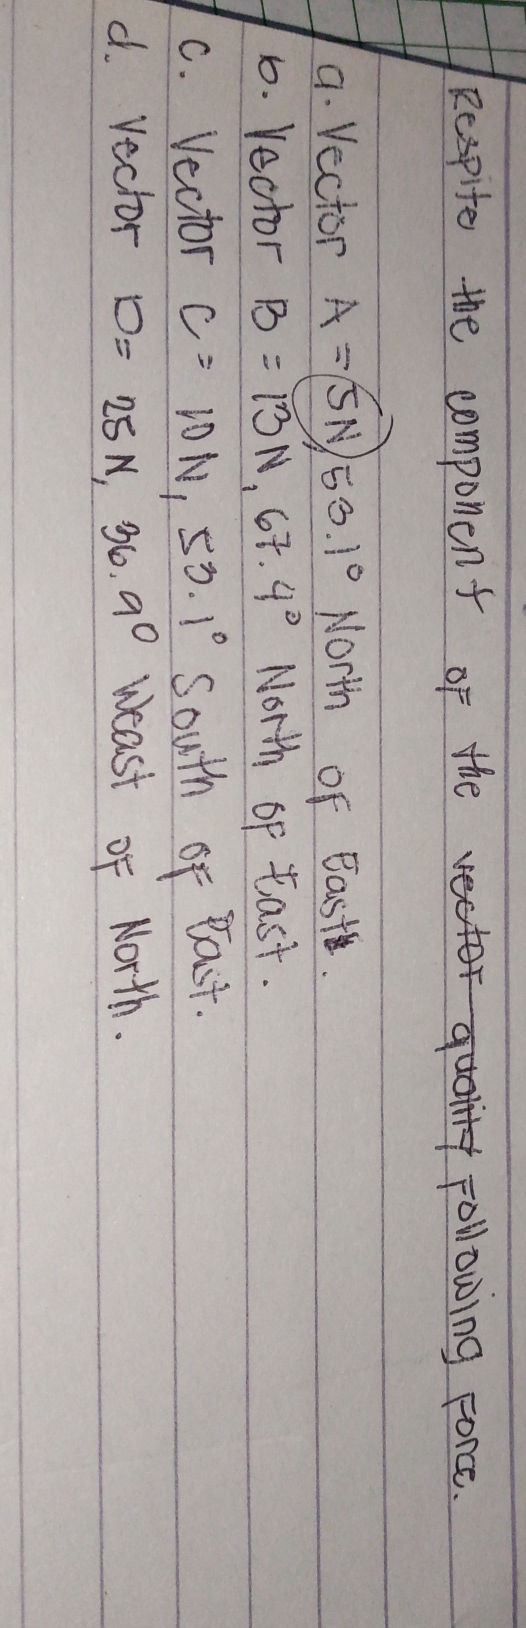 Respite the component of the vector quality Following Force.
a. Vector A = 5N, 53.1° North of East.
b. Vector B = 13N, 67.4° North of East.
c. Vector C = 10N, 53.1° South of East.
d. Vector D = 25N, 36.9° Weast of North.